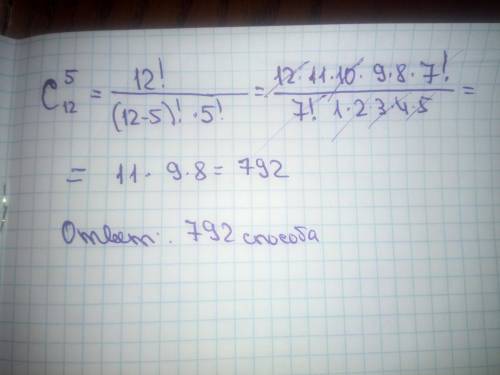 C₁₂⁵ = 12! / ((12-5)! · 5!) = 12 · 11 · 10 · 9 · 8 · 7! / (7! · 1 · 2 · 3 · 4 · 5) =
= 11 · 9 · 8 = 792
Ответ: 792 способа